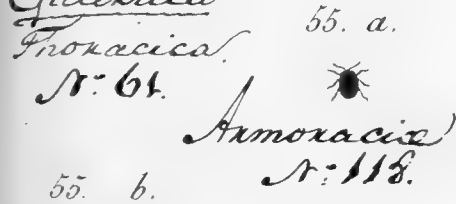 55. a.
Thoracica.
N: 61.
Armoraciæ
N: 118.
55. b.